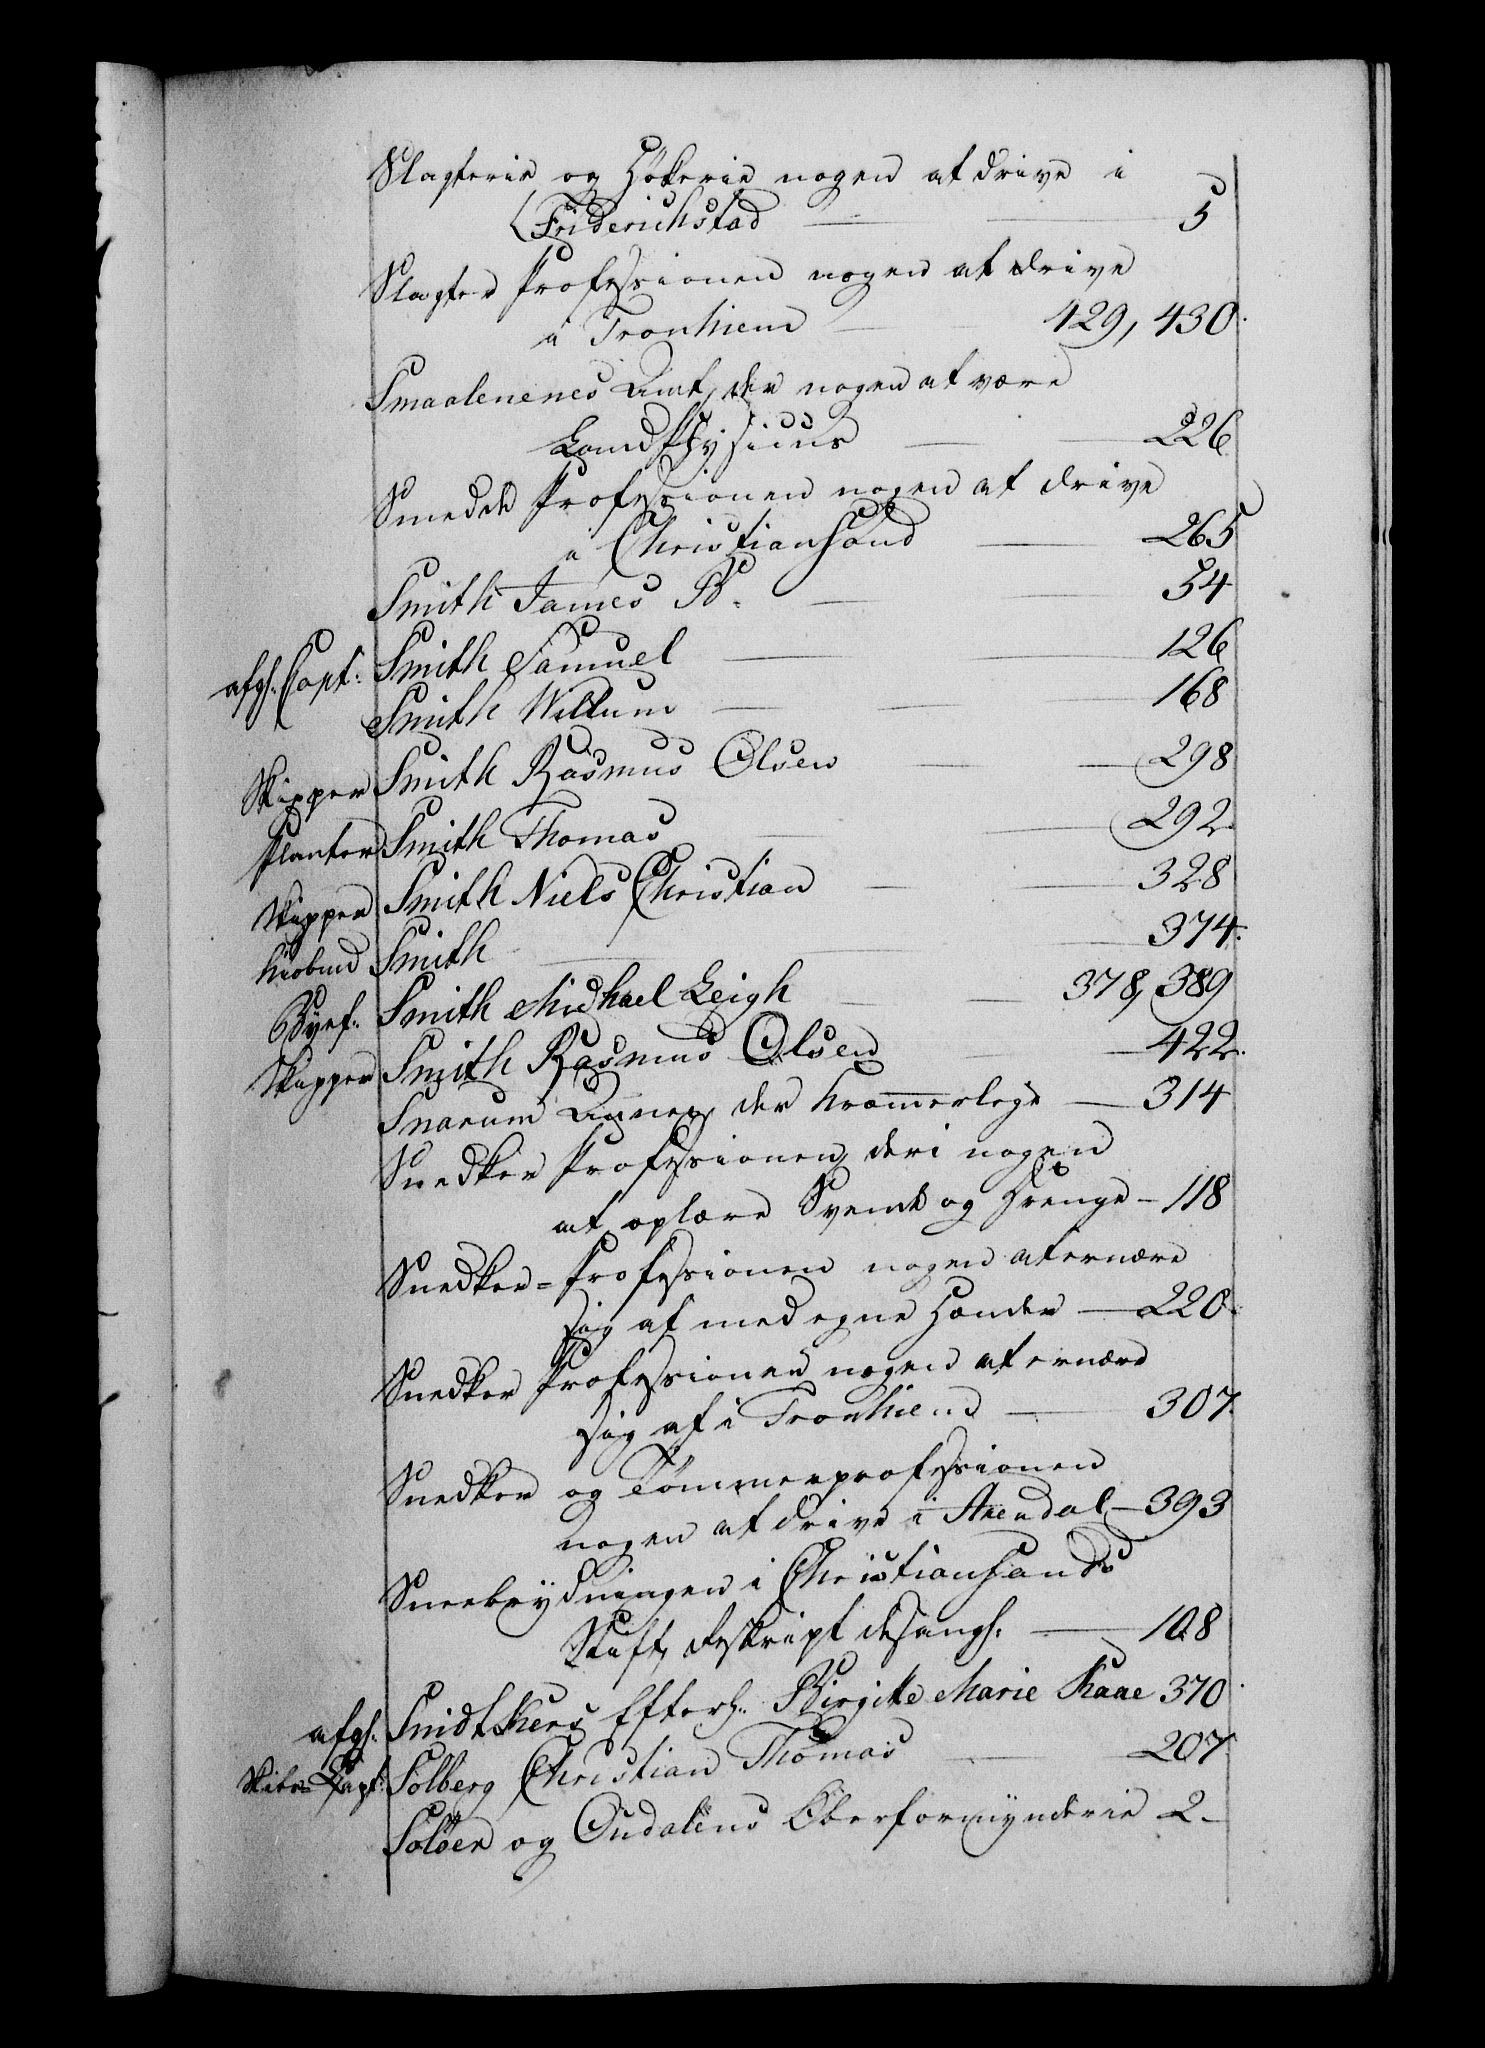 Slagterie og Høkerie nogen at drive i
Friderichstad 5
Slagter Professionen nogen at drive
i Tronhiem 429, 430.
Smaalenenes Amt, der nogen at være
Landphysicus 226
Smedde Professionen nogen at drive
i Christiansand 265
Smith James B. 54
afgh. Capt: Smith Samuel 126
Smith Willum 168
Skipper Smith Rasmus Olsen 298
Planter Smith Thomas 292.
Skipper Smith Niels Christian 328
Kiøbmd Smith 374.
Byef: Smith Michael Leigh 378, 389
Skipper Smith Rasmus Olsen 422.
Snarum Annex, der Kræmmerleye 314
Snedker Professionen, deri nogen
at oplære Svenne og Drenge - 118
Snedker= Professionen nogen at ernære
sig af med egne Hænder 220.
Snedker Professionen nogen at ernære
sig af i Tronhiem 307.
Snedker og Tømmerprofessionen
nogen at drive i Arendal 393
Sneebrydningen i Christiansands
Stift, Reskript desangl. 108
afgh. Snidtkers Efterl. Birgitte Marie Kaae 370.
Skibs-Capt: Solberg Christian Thomas 207.
Soløer og Oudalens Oberformynderie 2.